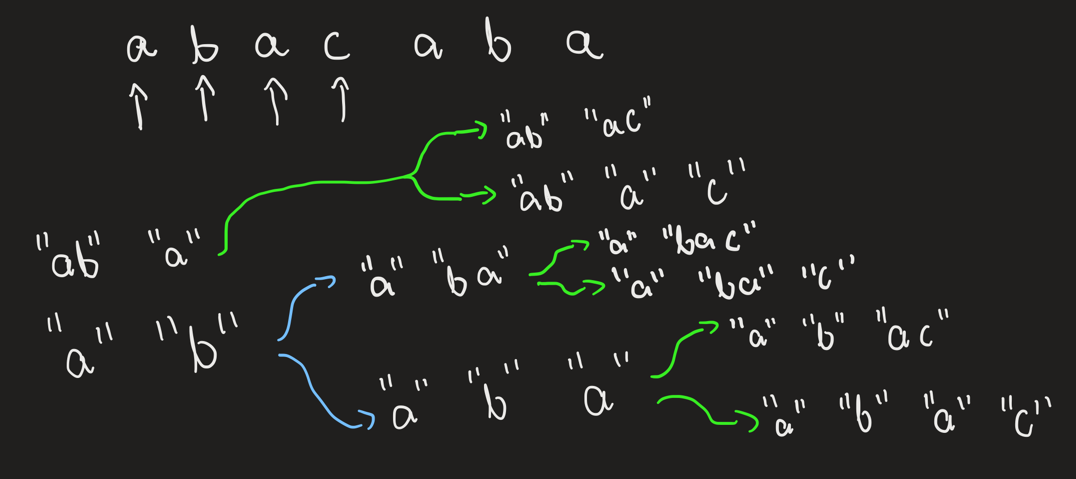 a b a c a b a
"ab" "ac"
"ab" "a" "c"
"ab" "a"
"a" "ba"
"a" "bac"
"a" "ba" "c"
"a" "b"
"a" "b" "a"
"a" "b" "ac"
"a" "b" "a" "c"